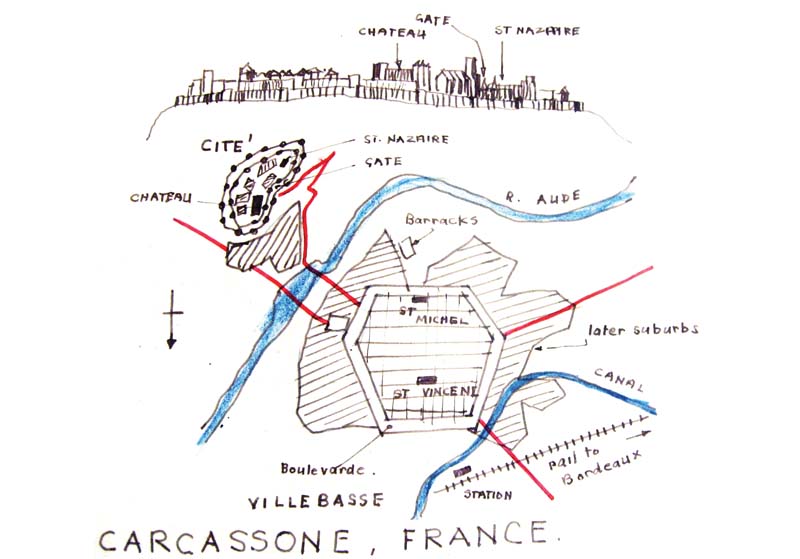 GATE
CHATEAU
ST NAZAIRE
CITE'
ST. NAZAIRE
GATE
CHATEAU
R. AUDE
Barracks
ST
MICHEL
later suburbs
ST VINCENT
CANAL
Boulevarde.
rail to
Bordeaux
STATION
VILLE BASSE
CARCASSONE, FRANCE.